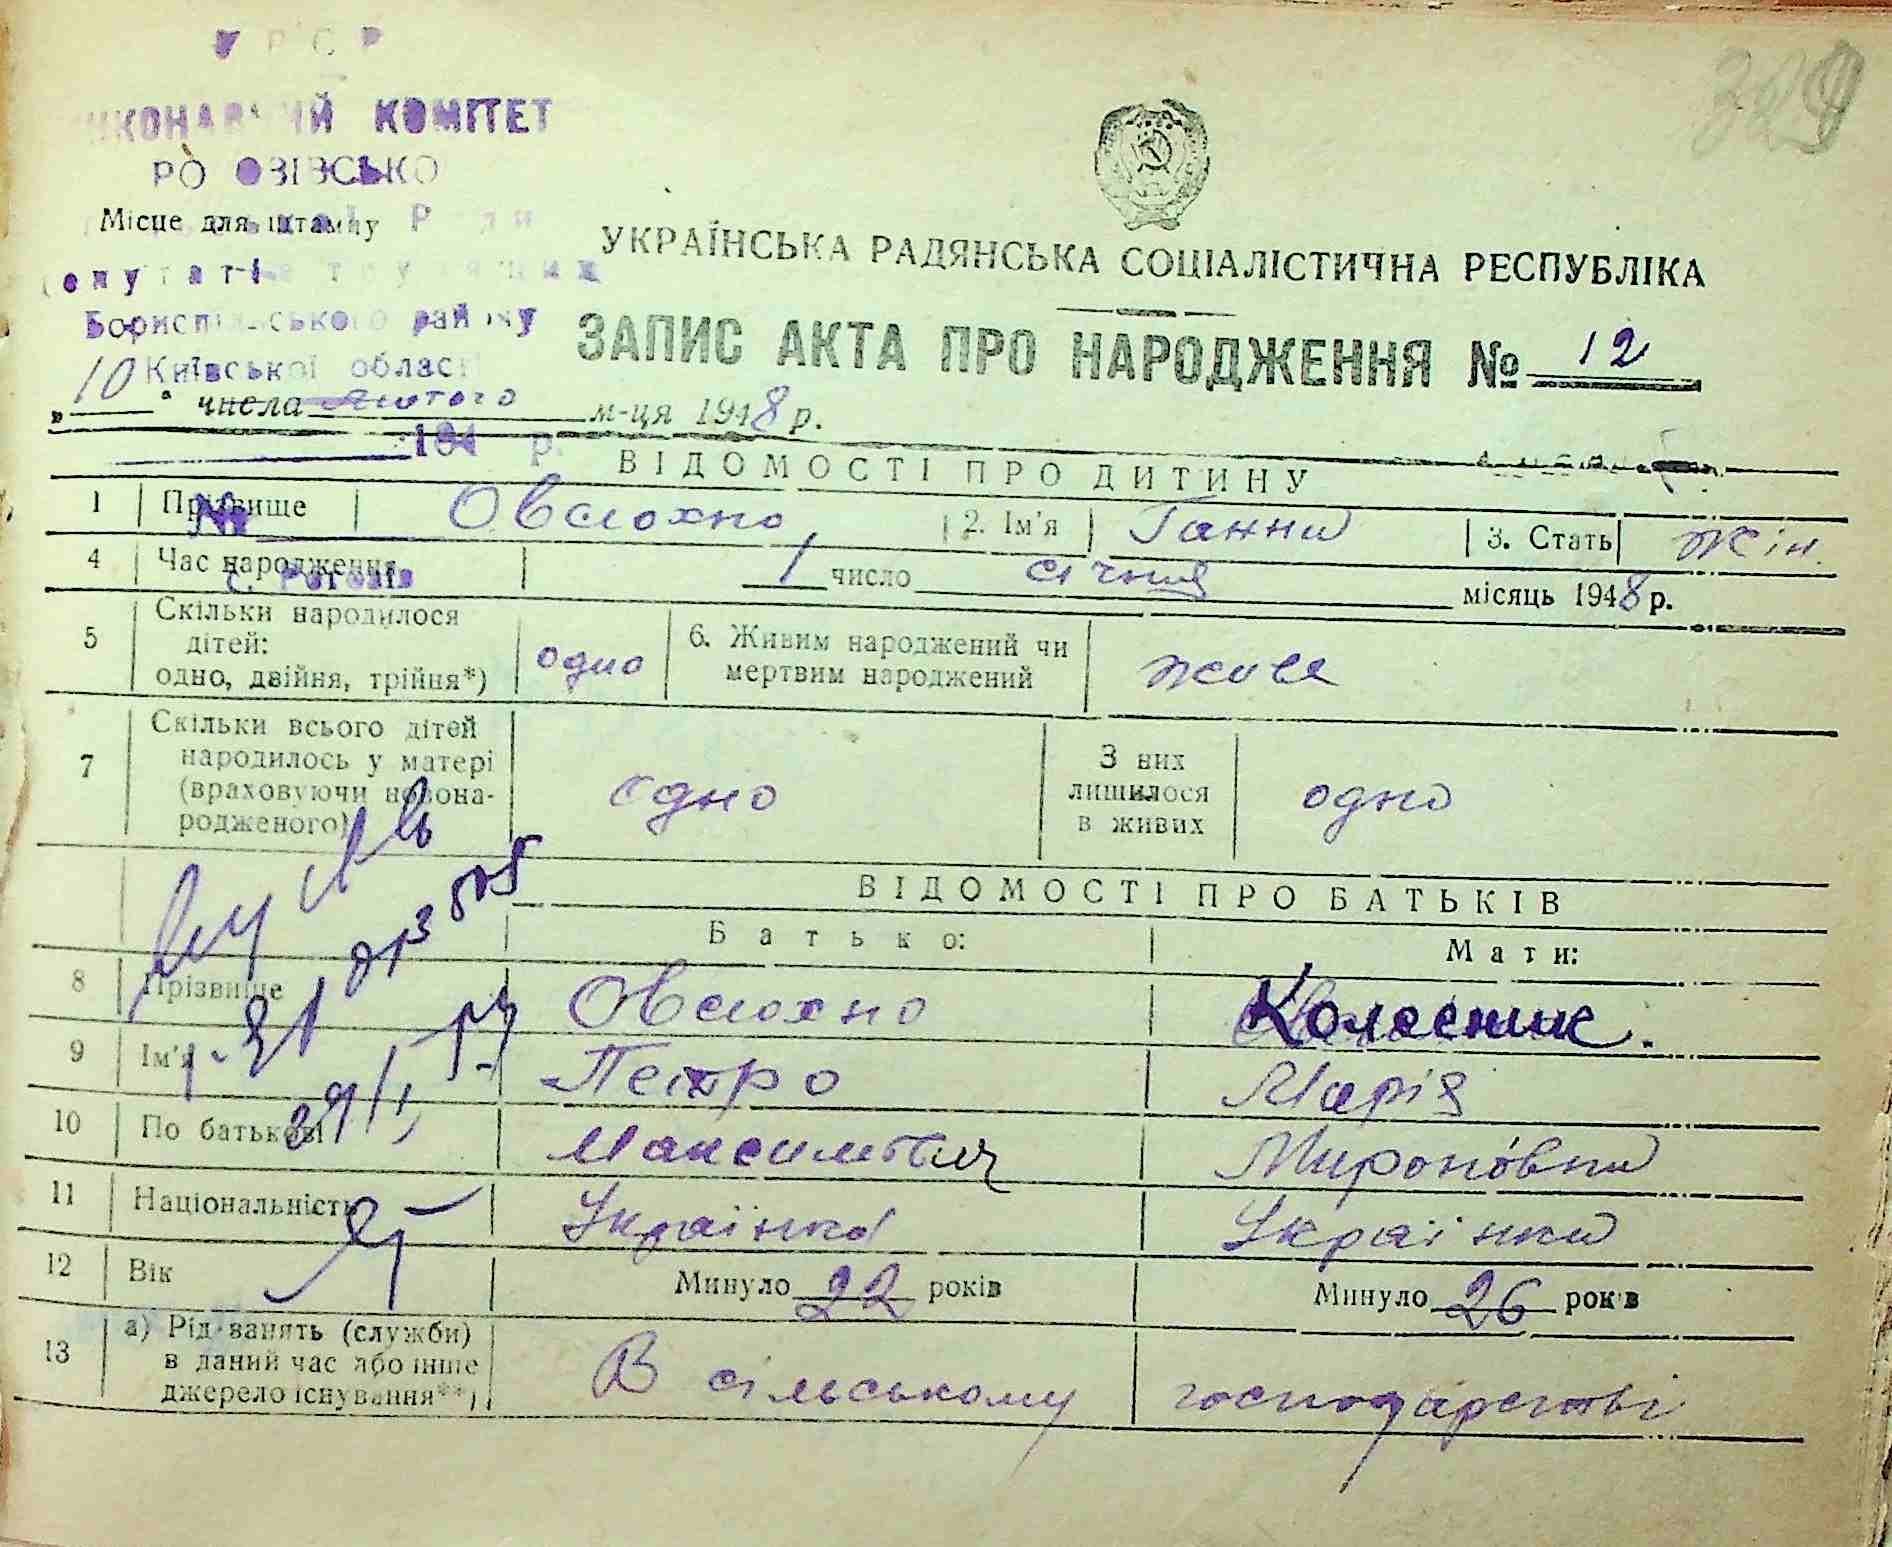 УРСР
ВИКОНАВЧИЙ КОМІТЕТ
Місце для штампу
Бориспільського району
Київської област
"10" числа лютого м-ця 1948 р.
194 р.
329
УКРАЇНСЬКА РАДЯНСЬКА СОЦІАЛІСТИЧНА РЕСПУБЛІКА
ЗАПИС АКТА ПРО НАРОДЖЕННЯ № 12
ВІДОМОСТІ ПРО ДИТИНУ
1 Прізвище Овсюхно 2. Ім'я Ганна 3. Стать жін.
№
4 Час народження 1 число січня місяць 1948 р.
с. Рогозів
5 Скільки народилося дітей: одно, двійня, трійня*) одно 6. Живим народжений чи мертвим народжений живе
7 Скільки всього дітей народилось у матері (враховуючи новонародженого) одно З них лишилося в живих одно
ВІДОМОСТІ ПРО БАТЬКІВ
Батько: Мати:
8 Прізвище Овсюхно Колесник.
9 Ім'я Петро Марія
10 По батькові Максимович Миронівна
11 Національність Українка Українка
12 Вік Минуло 22 років Минуло 26 років
13 а) Рід занять (служби) в даний час або інше джерело існування**) В сільському господарстві